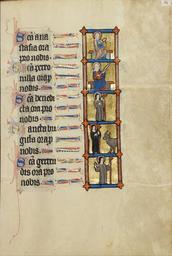 Sca ana
stasia ora
pro nobis
Sca petro
nilla ora
pro nobis
Sca bened
cta ora pro
nobis
Sancta bri
gida ora
pro nobis
Sca gertru
dis ora pro
nobis